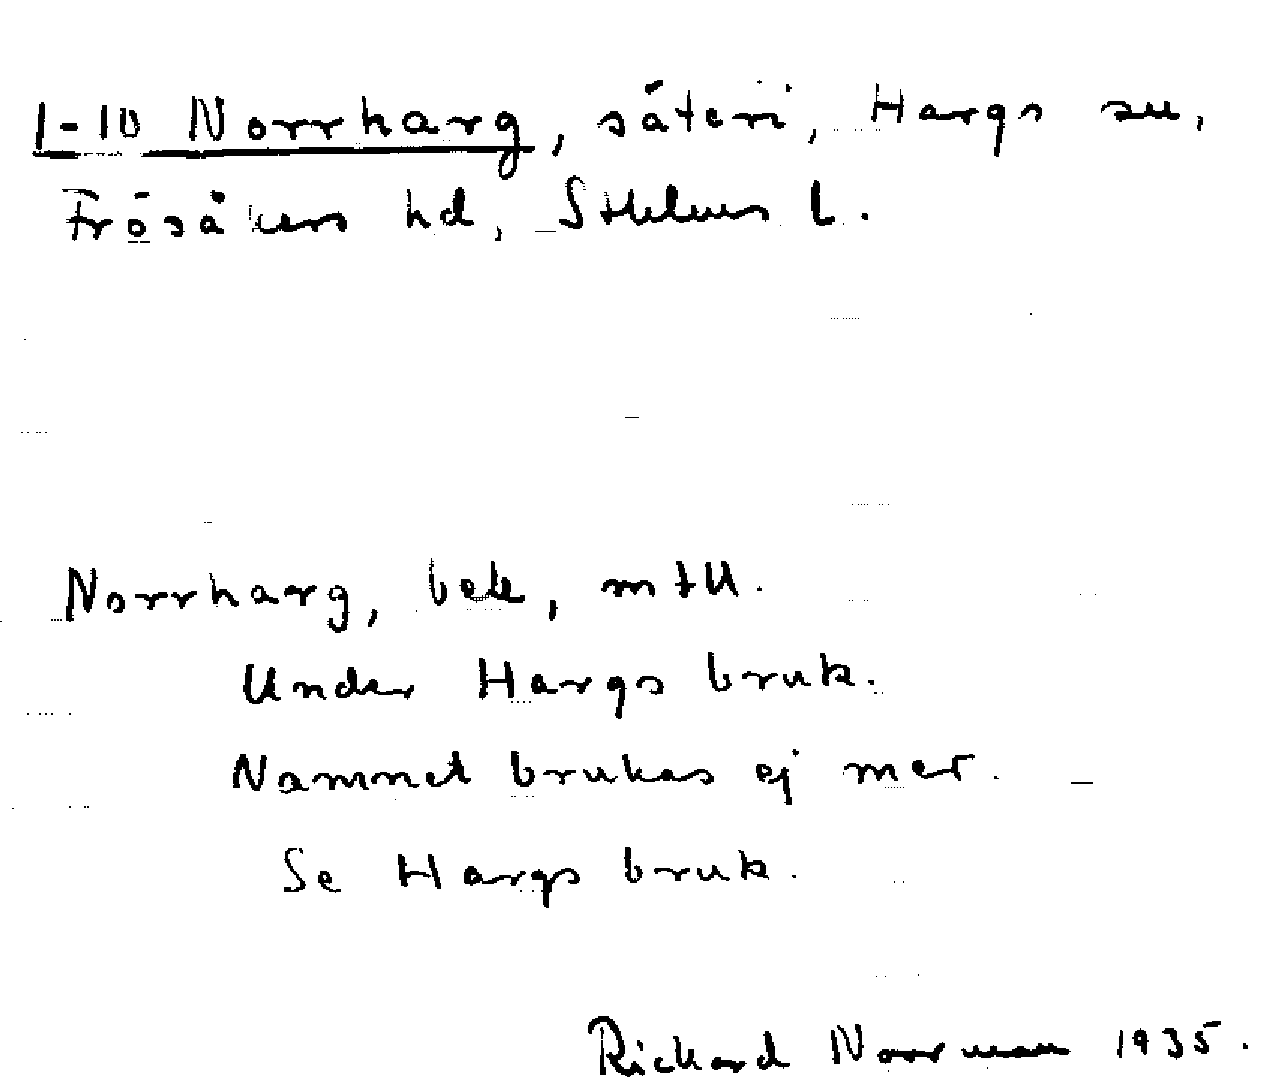 1-10 Norrharg, säteri, Hargs sn,
Frösåkers hd, Sthlms l.
Norrharg, bek, mtU.
Under Hargs bruk.
Namnet brukas ej mer.
Se Hargs bruk.
Rickard Norrman 1935.